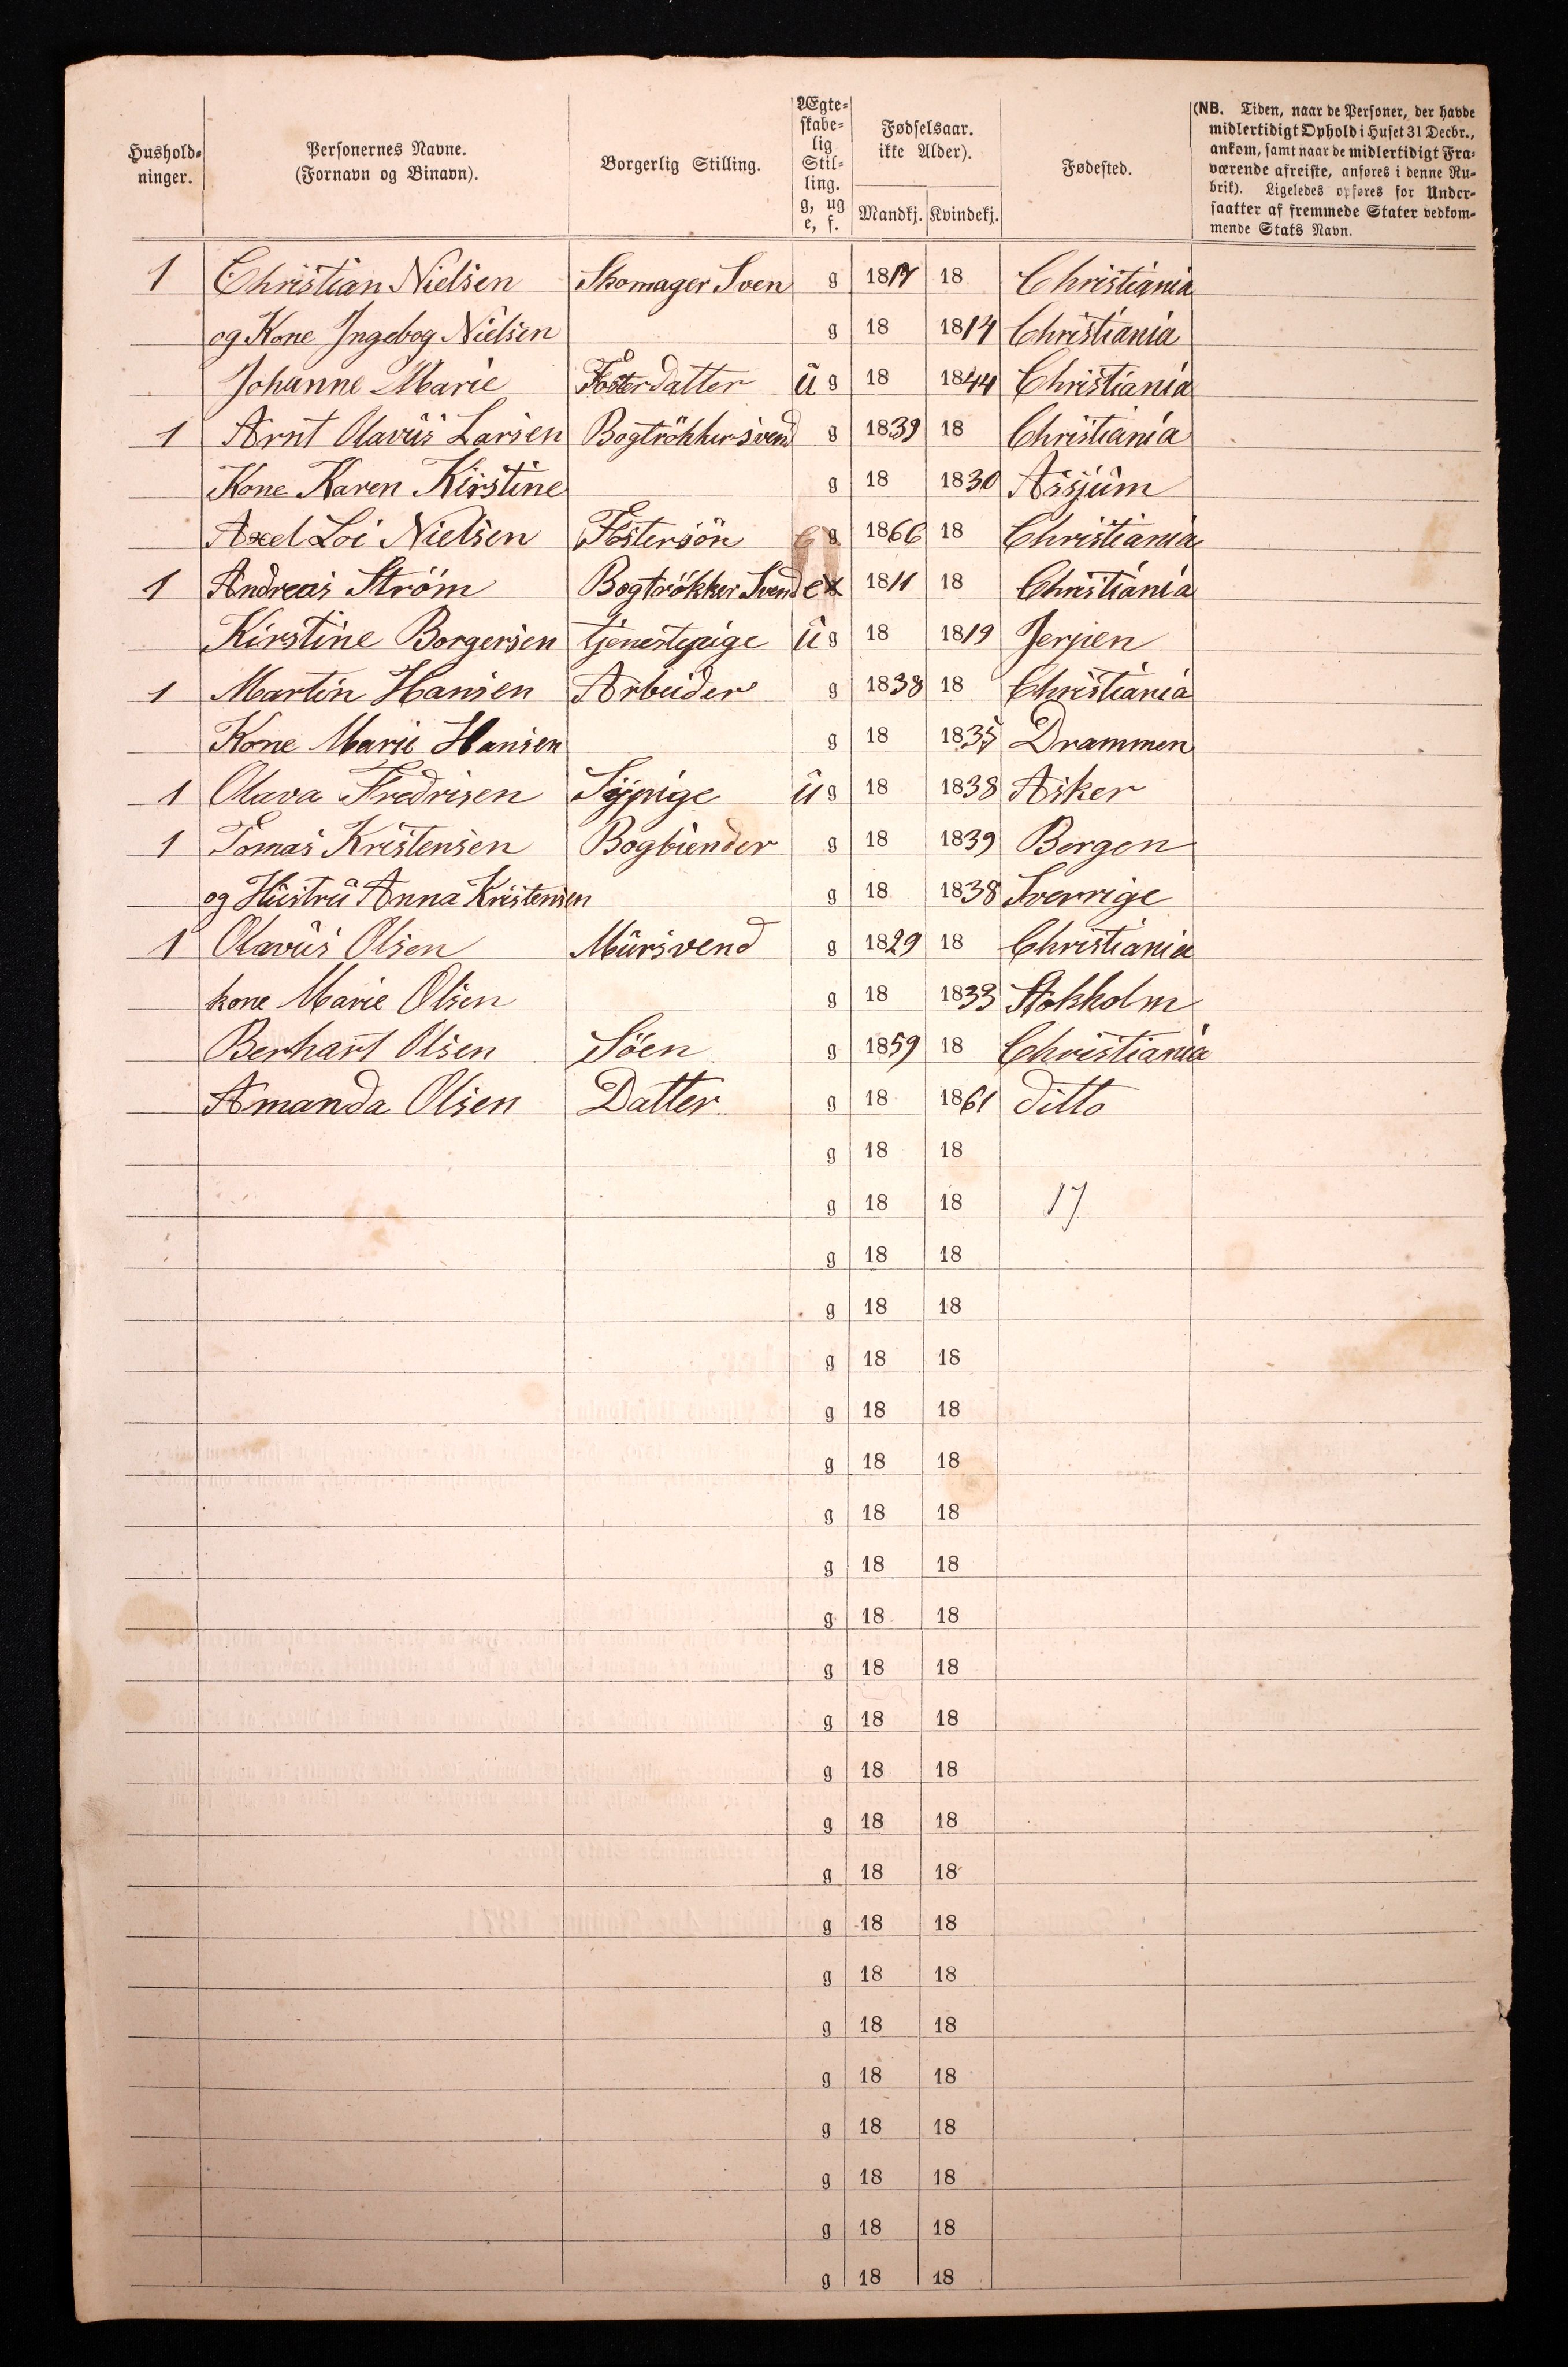 Hushold-
ninger.
Personernes Navne.
(Fornavn og Binavn).
Borgerlig Stilling.
Ægte-
skabe-
lig
Stil-
ling.
g, ug
e, f.
Fødselsaar.
ikke Alder).
Mandkj. Kvindekj.
Fødested.
(NB. Tiden, naar de Personer, der havde
midlertidigt Ophold i Huset 31 Decbr.,
ankom, samt naar de midlertidigt Fra-
værende afreiste, anføres i denne Ru-
brik). Ligeledes opføres for Under-
saatter af fremmede Stater vedkom-
mende Stats Navn.
1 Christian Nielsen Skomager Sven g 1817 18 Christiania
og Kone Ingebog Nielsen g 18 1814 Christiania
Johanne Marie Fosterdatter u g 18 1844 Christiania
1 Arnt Olavus Larsen Bogtrökkersvend g 1839 18 Christiania
Kone Karen Kirstine g 18 1830 Assjum
Axel Loi Nielsen Fostersön g 1866 18 Christiania
1 Andreas Ström Bogtrökker Svend e 1811 18 Christiania
Kirstine Borgersen tjenestepige u g 18 1819 Jerpen
1 Martin Hansen Arbeider g 1838 18 Christiania
Kone Marie Hansen g 18 1835 Drammen
1 Olava Fredrisen Sypige u g 18 1838 Asker
1 Tomas Kristensen Bogbiender g 18 1839 Bergen
og Hustru Anna Kristensen g 18 1838 Sverrige
1 Olavus Olsen Mursvend g 1829 18 Christiania
kone Marie Olsen g 18 1833 Stokholm
Berhart Olsen Söen g 1859 18 Christiania
Amanda Olsen Datter g 18 1861 ditto
g 18 18
g 18 18 17
g 18 18
g 18 18
g 18 18
g 18 18
g 18 18
g 18 18
g 18 18
g 18 18
g 18 18
g 18 18
g 18 18
g 18 18
g 18 18
g 18 18
g 18 18
g 18 18
g 18 18
g 18 18
g 18 18
g 18 18
g 18 18